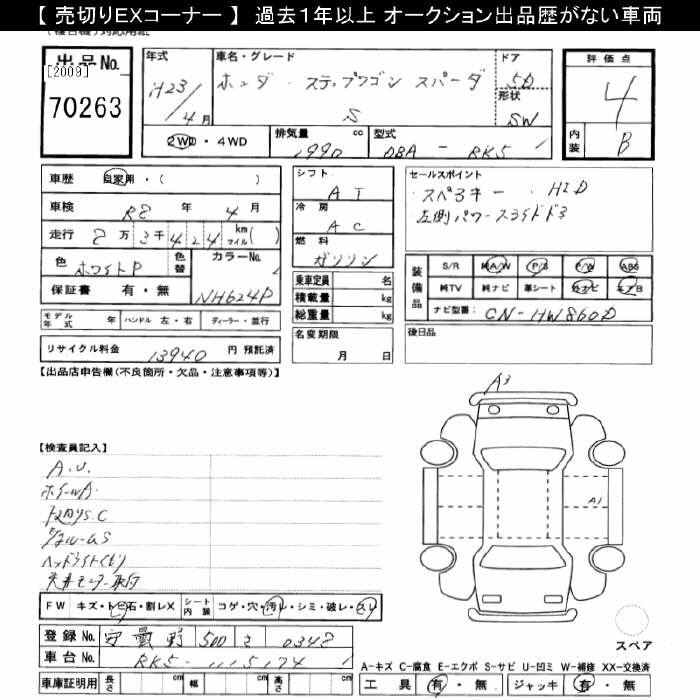 【 売切りEXコーナー 】 過去1年以上 オークション出品歴がない車両
出品No. 年式 車名・グレード ドア 評価点
[2009]
70263
H23/4月 ホンダ ・ ステップワゴン スパーダ 5D 4
S 形状 SW
2WD・4WD 排気量 cc 型式 内装 B
1990 DBA - RK5
車歴 自家用・( ) シフト AT セールスポイント
スペアキー HID
車検 R8 年 4 月 冷房 AC 左側パワースライドドア
走行 8 万 3 千 4 2 4 km マイル ( ) 燃料 ガソリン
色 ホワイトP 色替 カラーNo. NH624P
保証書 有・無
乗車定員 名
積載量 kg
総重量 kg
装備品 S/R 純A/W P/S P/W ABS
純TV 純ナビ 革シート 社ナビ エアB
ナビ型番: CN-HW860D
モデル年式 年 ハンドル 左・右 ディーラー・並行
名変期限 月 日
後日品
リサイクル料金 13940 円 預託済
【出品店申告欄(不良箇所・欠品・注意事項等)】
A3
【検査員記入】
A.U.
ホイールA
A1
ヘッドライトくもり
天井モニター取付
FW キズ・トビ石・割レX シート内装 コゲ・穴・汚レ・シミ・破レ・スレ
登録No. 安曇野 500 さ 0348
車台No. RK5-1115174
スペア
A-キズ C-腐食 E-エクボ S-サビ U-凹ミ W-補修 XX-交換済
車庫証明用 長さ cm 幅 cm 高さ cm 工具 有・無 ジャッキ 有・無